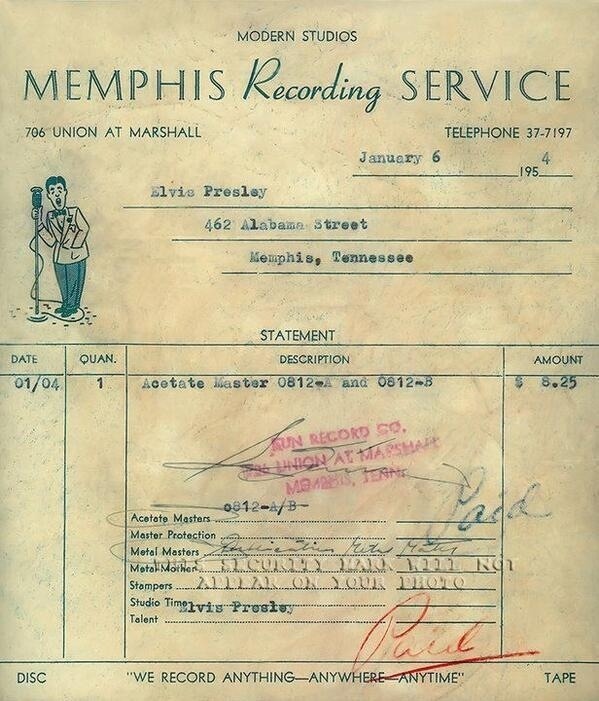 MODERN STUDIOS
MEMPHIS Recording SERVICE
706 UNION AT MARSHALL TELEPHONE 37-7197
January 6 1954
Elvis Presley
462 Alabama Street
Memphis, Tennessee
STATEMENT
DATE QUAN. DESCRIPTION AMOUNT
01/04 1 Acetate Master 0812-A and 0812-B $ 8.25
SUN RECORD CO.
706 UNION AT MARSHALL
MEMPHIS, TENN.
Paid
0812-A/B
Acetate Masters
Master Protection
Metal Masters
Metal Mother
THIS SECURITY MARK WILL NOT
Stampers
APPEAR ON YOUR PHOTO
Studio Time Elvis Presley
Talent
Paid
DISC "WE RECORD ANYTHING—ANYWHERE—ANYTIME" TAPE